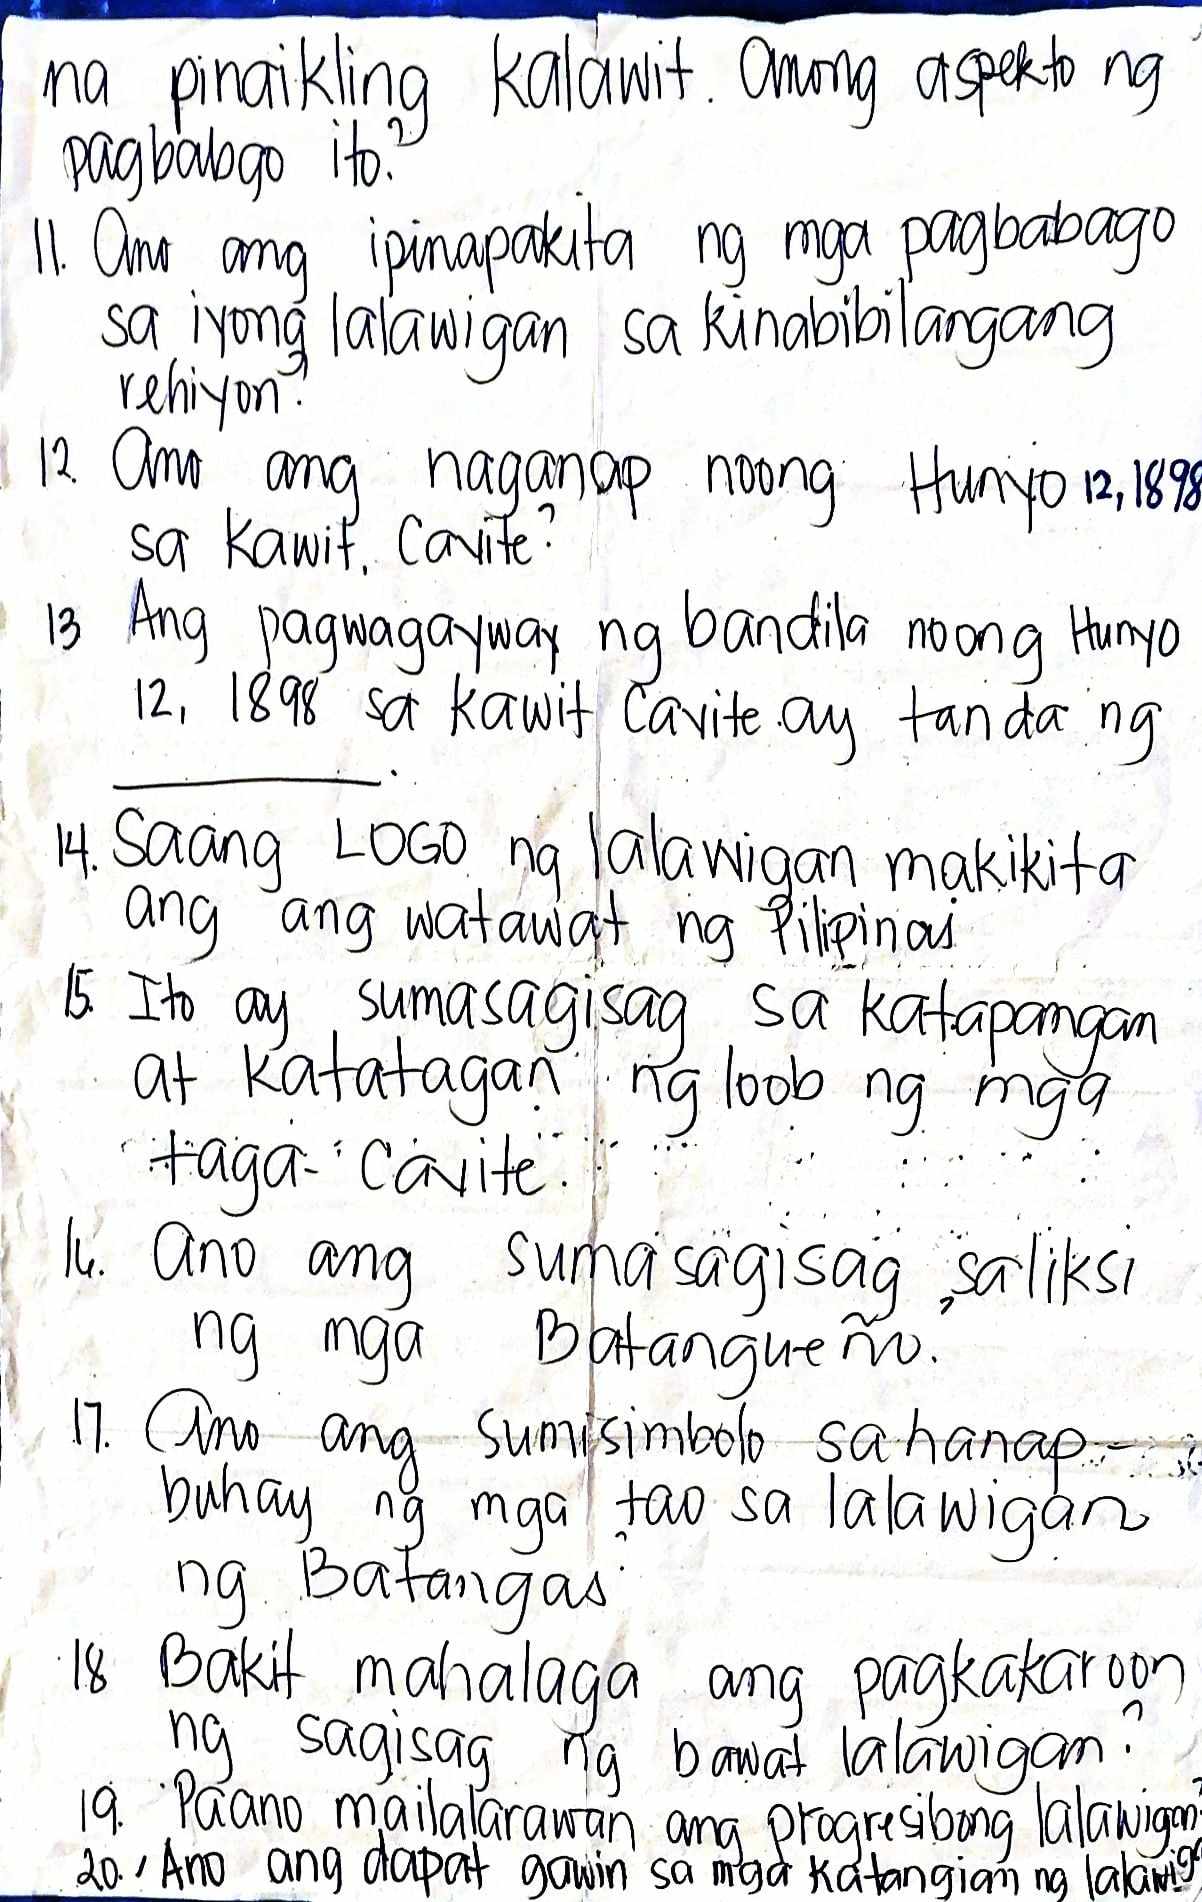 na pinaikling kalawit. Anong aspekto ng
pagbabgo ito?
11. Ano ang ipinapakita ng mga pagbabago
sa iyong lalawigan sa kinabibilangang
rehiyon?
12. Ano ang naganap noong Hunyo 12, 1898
sa Kawit, Cavite?
13 Ang pagwagayway ng bandila noong Hunyo
12, 1898 sa Kawit Cavite ay tanda ng
__________.
14. Saang LOGO ng lalawigan makikita
ang ang watawat ng Pilipinas
15. Ito ay sumasagisag sa katapangan
at katatagan ng loob ng mga
taga-Cavite.
16. Ano ang sumasagisag saliksi
ng mga Batangueño.
17. Ano ang sumisimbolo sa hanap-
buhay ng mga tao sa lalawigan
ng Batangas?
18 Bakit mahalaga ang pagkakaroon
ng sagisag ng bawat lalawigan?
19. Paano mailalarawan ang progresibong lalawigan?
20. Ano ang dapat gawin sa mga katangian ng